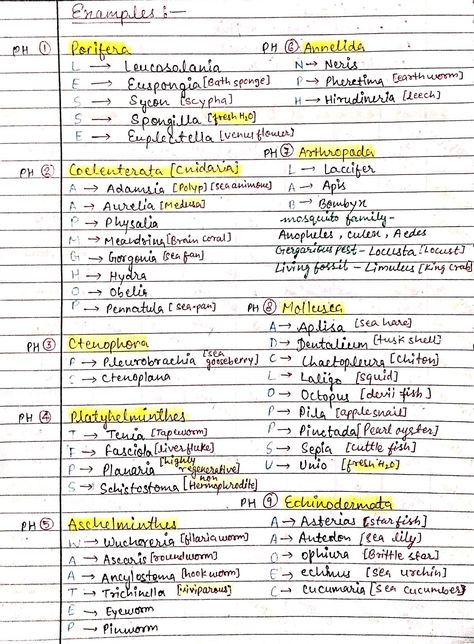 Examples :-
PH ① Porifera
L → Leucosolania
E → Euspongia [Bath sponge]
S → Sycon [Scypha]
S → Spongilla [fresh H2O]
E → Euplectella [venus flower]
PH ② Coelenterata [Cnidaria]
A → Adamsia [Polyp] [sea animone]
A → Aurelia [Medusa]
P → Physalia
M → Meandrina [Brain coral]
G → Gorgonia [sea fan]
H → Hydra
O → Obelia
P → Pennatula [sea-pan]
PH ③ Ctenophora
P → Pleurobrachia [sea gooseberry]
C → Ctenoplana
PH ④ Platyhelminthes
T → Tenia [Tapeworm]
F → Fasciola [liverfluke]
P → Planaria [highly regenerative]
S → Schictostoma [non Hermaphrodite]
PH ⑤ Aschelminthes
W → Wuchereria [filaria worm]
A → Ascaris [roundworm]
A → Ancylostoma [hook worm]
T → Trichinella [viviparous]
E → Eyeworm
P → Pinworm
PH ⑥ Annelida
N → Neris
P → Pheretima [earth worm]
H → Hirudineria [leech]
PH ⑦ Arthropada
L → Laccifer
A → Apis
B → Bombyx
mosquito family-
Anopheles, culex, Aedes
Gergarious pest - Locusta [Locust]
Living fossil - Limulus [King crab]
PH ⑧ Mollusca
A → Aplisa [Sea hare]
D → Dentalium [tusk shell]
C → Chaetopleura [Chiton]
L → Laligo [squid]
O → Octopus [devil fish]
P → Pila [apple snail]
P → Pinctada [Pearl oyster]
S → Sepia [cuttle fish]
U → Unio [fresh H2O]
PH ⑨ Echinodermata
A → Asterias [star fish]
A → Antedon [Sea lily]
O → ophiura [Brittle star]
E → echinus [Sea urchin]
C → cucumaria [Sea cucumber]